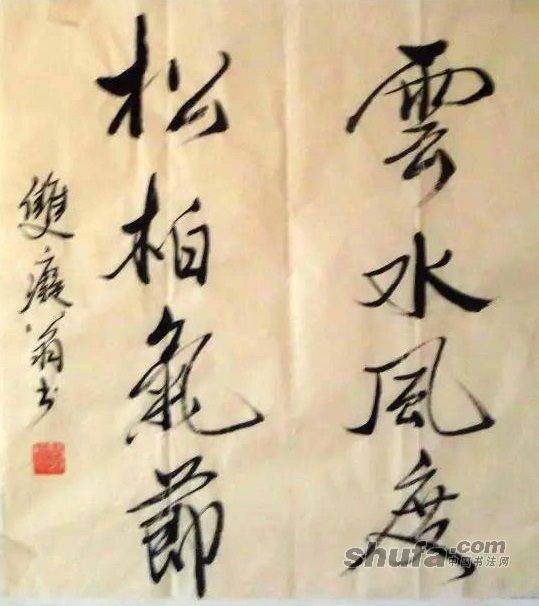 雲水風度
松柏氣節
雙癡翁书
shufa.com
中国书法网